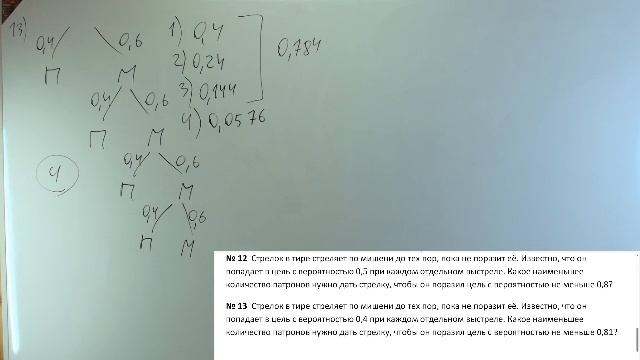 13)
0,4 0,6 1) 0,4
П М 2) 0,24 0,784
0,4 0,6 3) 0,144
П М 4) 0,0576
4 0,4 0,6
П М
0,4 0,6
П М
№ 12 Стрелок в тире стреляет по мишени до тех пор, пока не поразит её. Известно, что он
попадает в цель с вероятностью 0,5 при каждом отдельном выстреле. Какое наименьшее
количество патронов нужно дать стрелку, чтобы он поразил цель с вероятностью не меньше 0,8?
№ 13 Стрелок в тире стреляет по мишени до тех пор, пока не поразит её. Известно, что он
попадает в цель с вероятностью 0,4 при каждом отдельном выстреле. Какое наименьшее
количество патронов нужно дать стрелку, чтобы он поразил цель с вероятностью не меньше 0,81?